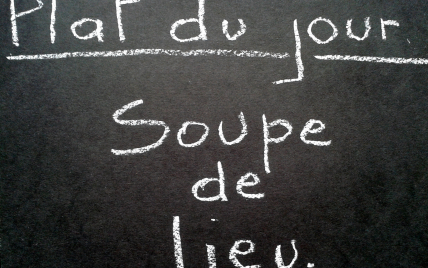 Plat du jour
Soupe
de
lieu.